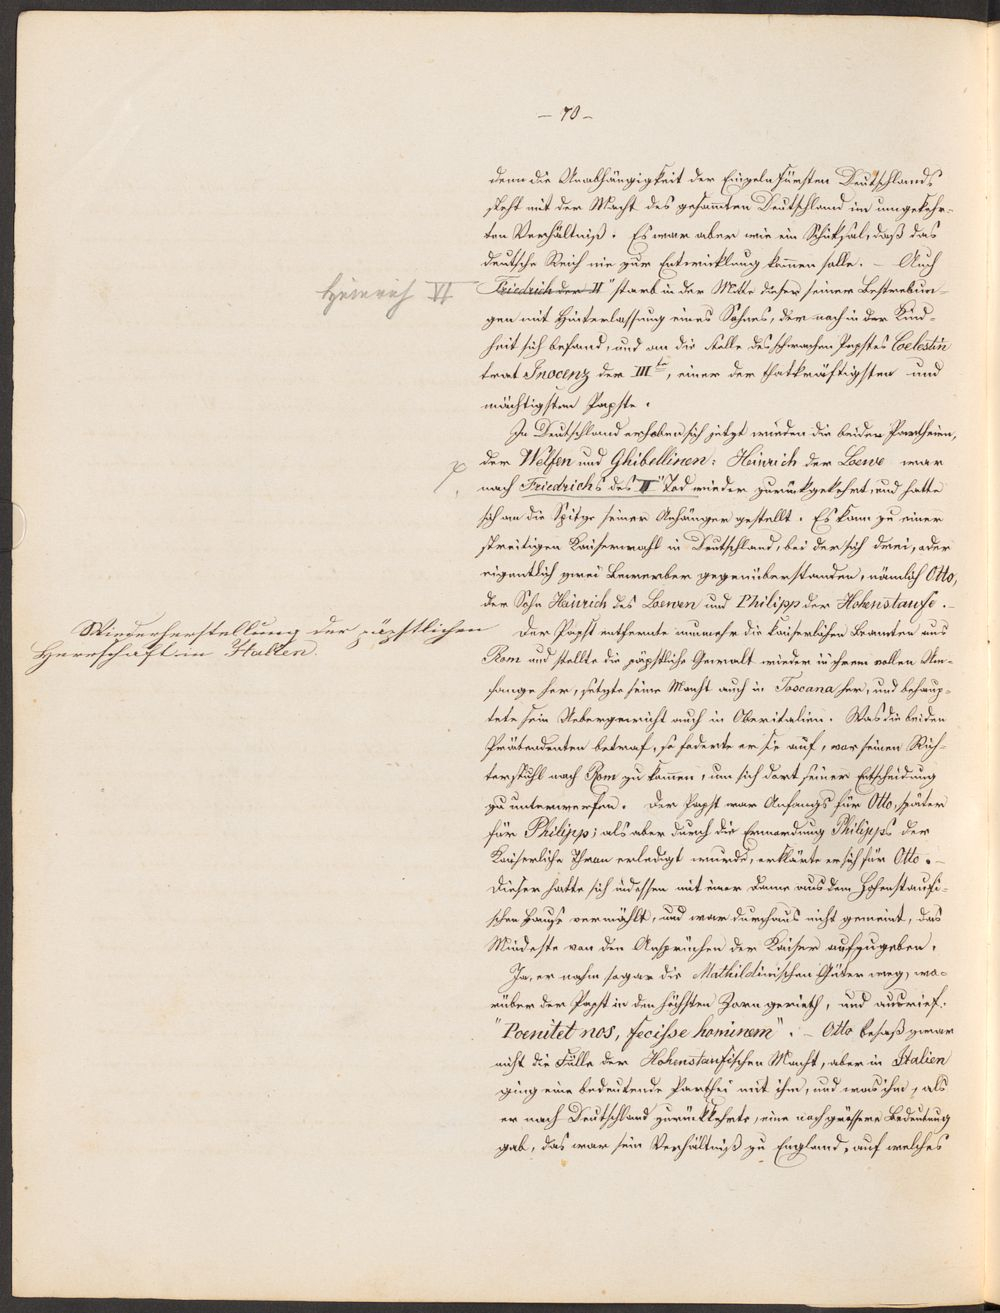 – 70 –
denn die Unabhängigkeit der Einzeln Fürsten Deutschlands
steht mit der Macht des gesam̄ten Deutschland im umgekehr-
ten Verhältniß. Es war aber wie ein Schiksal, daß das
deutsche Reich nie zur Entwicklung kom̄en solle. – Auch
Heinrich VI
Friedrich der II" starb in der Mitte dieser seiner Bestrebun-
gen mit Hinterlassung eines Sohnes, der noch in der Kind-
heit sich befand, und an die Stelle des schwachen Papstes Coelestin
trat Inocenz der III te, einer der thatkräftigsten und
mächtigsten Papste.
In Deutschland erhoben sich jetzt wieder die beiden Partheien,
der Welfen und Ghibellinen. Heinrich der Loewe war
nach Friedrichs des II" Tod wieder zurückgekehrt, und hatte
sich an die Spitze seiner Anhänger gestellt. Es kam zu einer
streitigen Kaiserwahl in Deutschland, bei der sich drei, oder
eigentlich zwei Bewerber gegenüberstanden, nämlich Otto,
der Sohn Heinrich des Loewen und Philipp der Hohenstaufe. –
Wiederherstellung der päpstlichen
Herrschaft in Italien.
Der Papst entfernte nunmehr die kaiserlichen Beamten aus
Rom und stellte die päpstliche Gewalt wieder in ihrem vollen Um-
fange her, setzte seine Macht auch in Toscana her, und behaup-
tete sein Uebergewicht auch in Oberitalien. Was die beiden
Prätendenten betraf, so foderte er sie auf, vor seinen Rich-
terstuhl nach Rom zu kom̄en, um sich dort seiner Entscheidung
zu unterwerfen. Der Papst war Anfangs für Otto, später
für Philipp; als aber durch die Ermordung Philipps der
Kaiserliche Thron erledigt wurde, erklärte er sich für Otto. –
Dieser hatte sich indessen mit einer Dame aus dem Hohenstaufi-
schen Hause vermählt, und war durchaus nicht gemeint, das
Mindeste von den Ansprüchen der Kaiser aufzugeben.
Ja, er nahm sogar die Mathildinischen Güter weg, wo-
rüber der Papst in den höchsten Zorn gerieth, und ausrief.
"Poenitet nos, fecisse hominem". – Otto besaß zwar
nicht die Fülle der Hohenstaufischen Macht, aber in Italien
ging eine bedeutende Parthei mit ihm, und was ihm, als
er nach Deutschland zurückkehrte, eine noch grössere Bedeutung
gab, das war sein Verhältniß zu England, auf welches